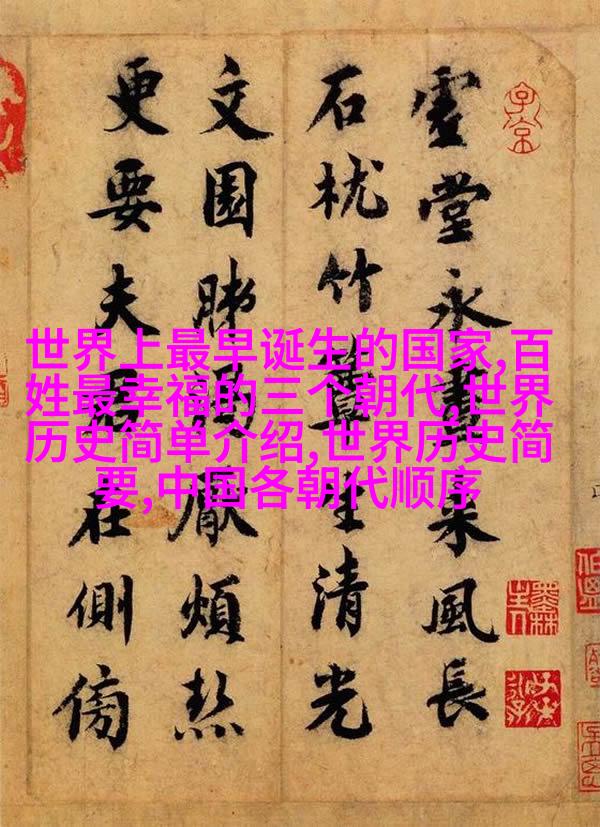 虛堂永來風長
石枕竹生清光
文園肺厭煩熱
更要夫在側傍
世界上最早诞生的国家,百
姓最幸福的三个朝代,世界
历史简单介绍,世界历史简
要,中国各朝代顺序